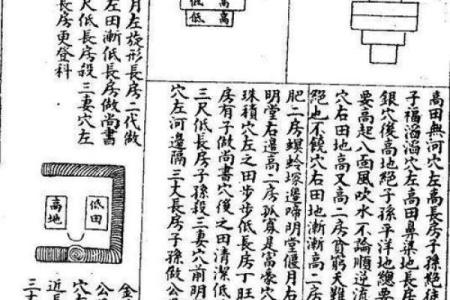 高田無河穴左高長房子孫絕
子福滔滔穴左高田鼻梁地長房
銀穴後高地絕子孫平洋地總要
要高起八面風吹水不論順逆流
穴右田地高又高二房貧窮大難
絕也不饒穴右田地漸漸高二房
肥二房螺蛉塚邊啼明堂偃月
明堂右邊高二房孤寡是富豪穴
珠積穴左之田步步低長房丁旺
房有子做尚書穴後之田清潔低
三尺低長房子孫殺三妻穴八前明
穴左河邊隔三丈長房子孫做公
低 高
低 高
月左旋形長房二代做
左田漸低長房做尚書
尺低長房殺三妻穴左
長房更登科
低田
高地
金
公
穴左
近
三十